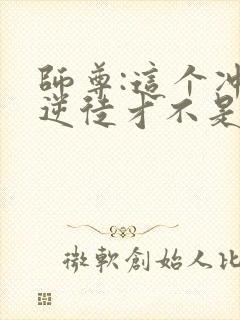 師尊:這个冲
逆徒才不是
微軟創始人比